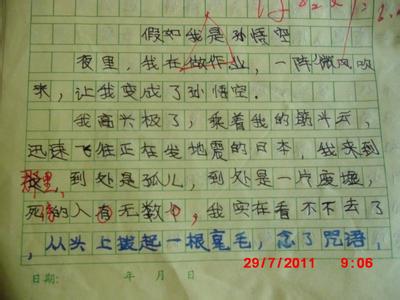 假如我是孙悟空
夜里，我在做作业，一阵微风吹
来，让我变成了孙悟空.
我高兴极了，乘着我的筋斗云，
迅速飞往正在发地震的日本，我来到
那里，到处是孤儿，到处是一片废墟，
死的人有无数，我实在看不不去了
，从头上拔起一根毫毛，念了咒语，
日期： 年 月 日
29/7/2011 9:06